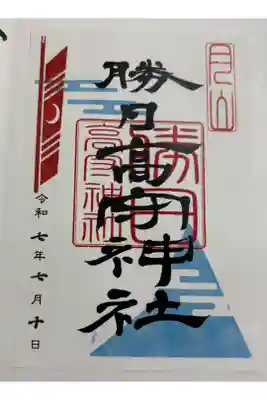 月山
勝日髙守神社
令和七年七月十日